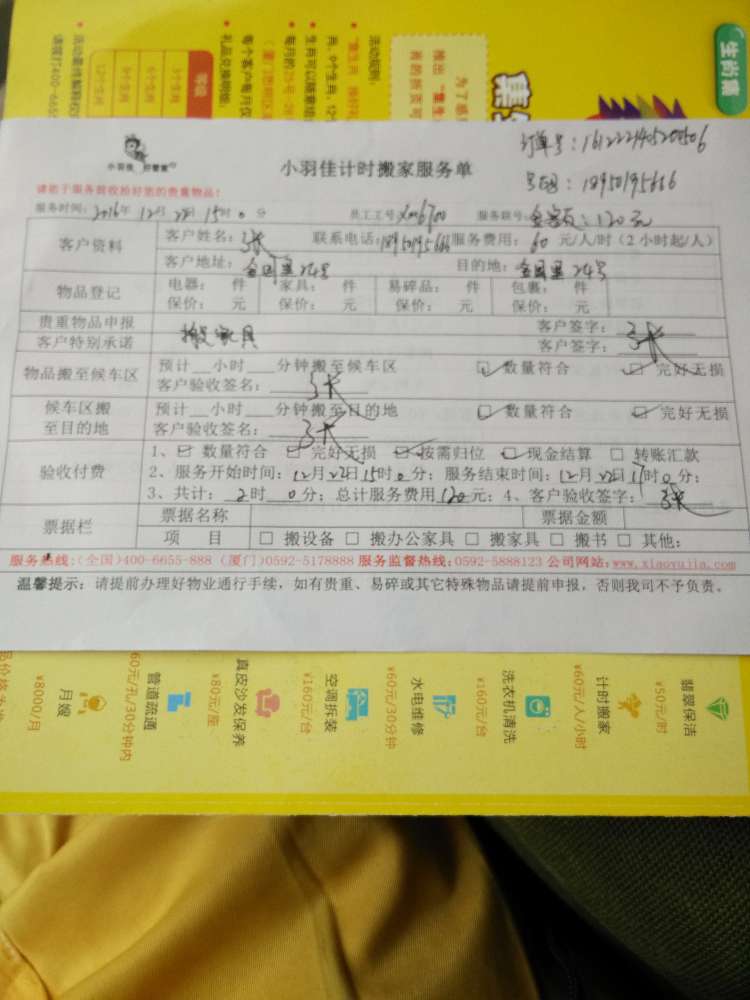 生尚篇
集
为了感
推出“集生
有的折页可
活动规则:
等级
3个生肖
6个生肖
9个生肖
12个生肖
小羽佳 好管家
小羽佳计时搬家服务单
订单号:16122240520506
号码:18950195666
请给予服务前收拾好您的贵重物品!
服务时间:2016年12月22日15时0分 员工工号xm6700 服务联号: 金额:120元
客户资料 客户姓名:张 联系电话:18950195666 服务费用:60元/人/时(2小时起/人)
客户地址: 24号 目的地: 24号
物品登记 电器: 件 家具: 件 易碎品: 件 包裹: 件
保价: 元 保价: 元 保价: 元 保价: 元
贵重物品申报 客户签字:张
客户特别承诺 搬家具 客户签字:张
物品搬至候车区 预计__小时__分钟搬至候车区 ☑数量符合 ☑完好无损
客户验收签名:张
候车区搬至目的地 预计__小时__分钟搬至目的地 ☑数量符合 ☑完好无损
客户验收签名:张
验收付费 1、☑数量符合 ☑完好无损 ☑按需归位 ☑现金结算 □转账汇款
2、服务开始时间:12月22日15时0分;服务结束时间:12月22日17时0分;
3、共计:2时0分;总计服务费用120元;4、客户验收签字:张
票据栏 票据名称 票据金额
项 目 □搬设备 □搬办公家具 □搬家具 □搬书 □其他:
服务热线:(全国)400-6655-888 (厦门)0592-5178888 服务监督热线:0592-5888123 公司网站:www.xiaoyujia.com
温馨提示:请提前办理好物业通行手续,如有贵重、易碎或其它特殊物品请提前申报,否则我司不予负责。
翡翠保洁
¥50元/时
计时搬家
¥60元/人/小时
洗衣机清洗
¥160元/台
水电维修
¥60元/30分钟
空调拆装
¥160元/台
真皮沙发保养
¥80元/座
管道疏通
60元/孔/30分钟内
月嫂
¥8000/月